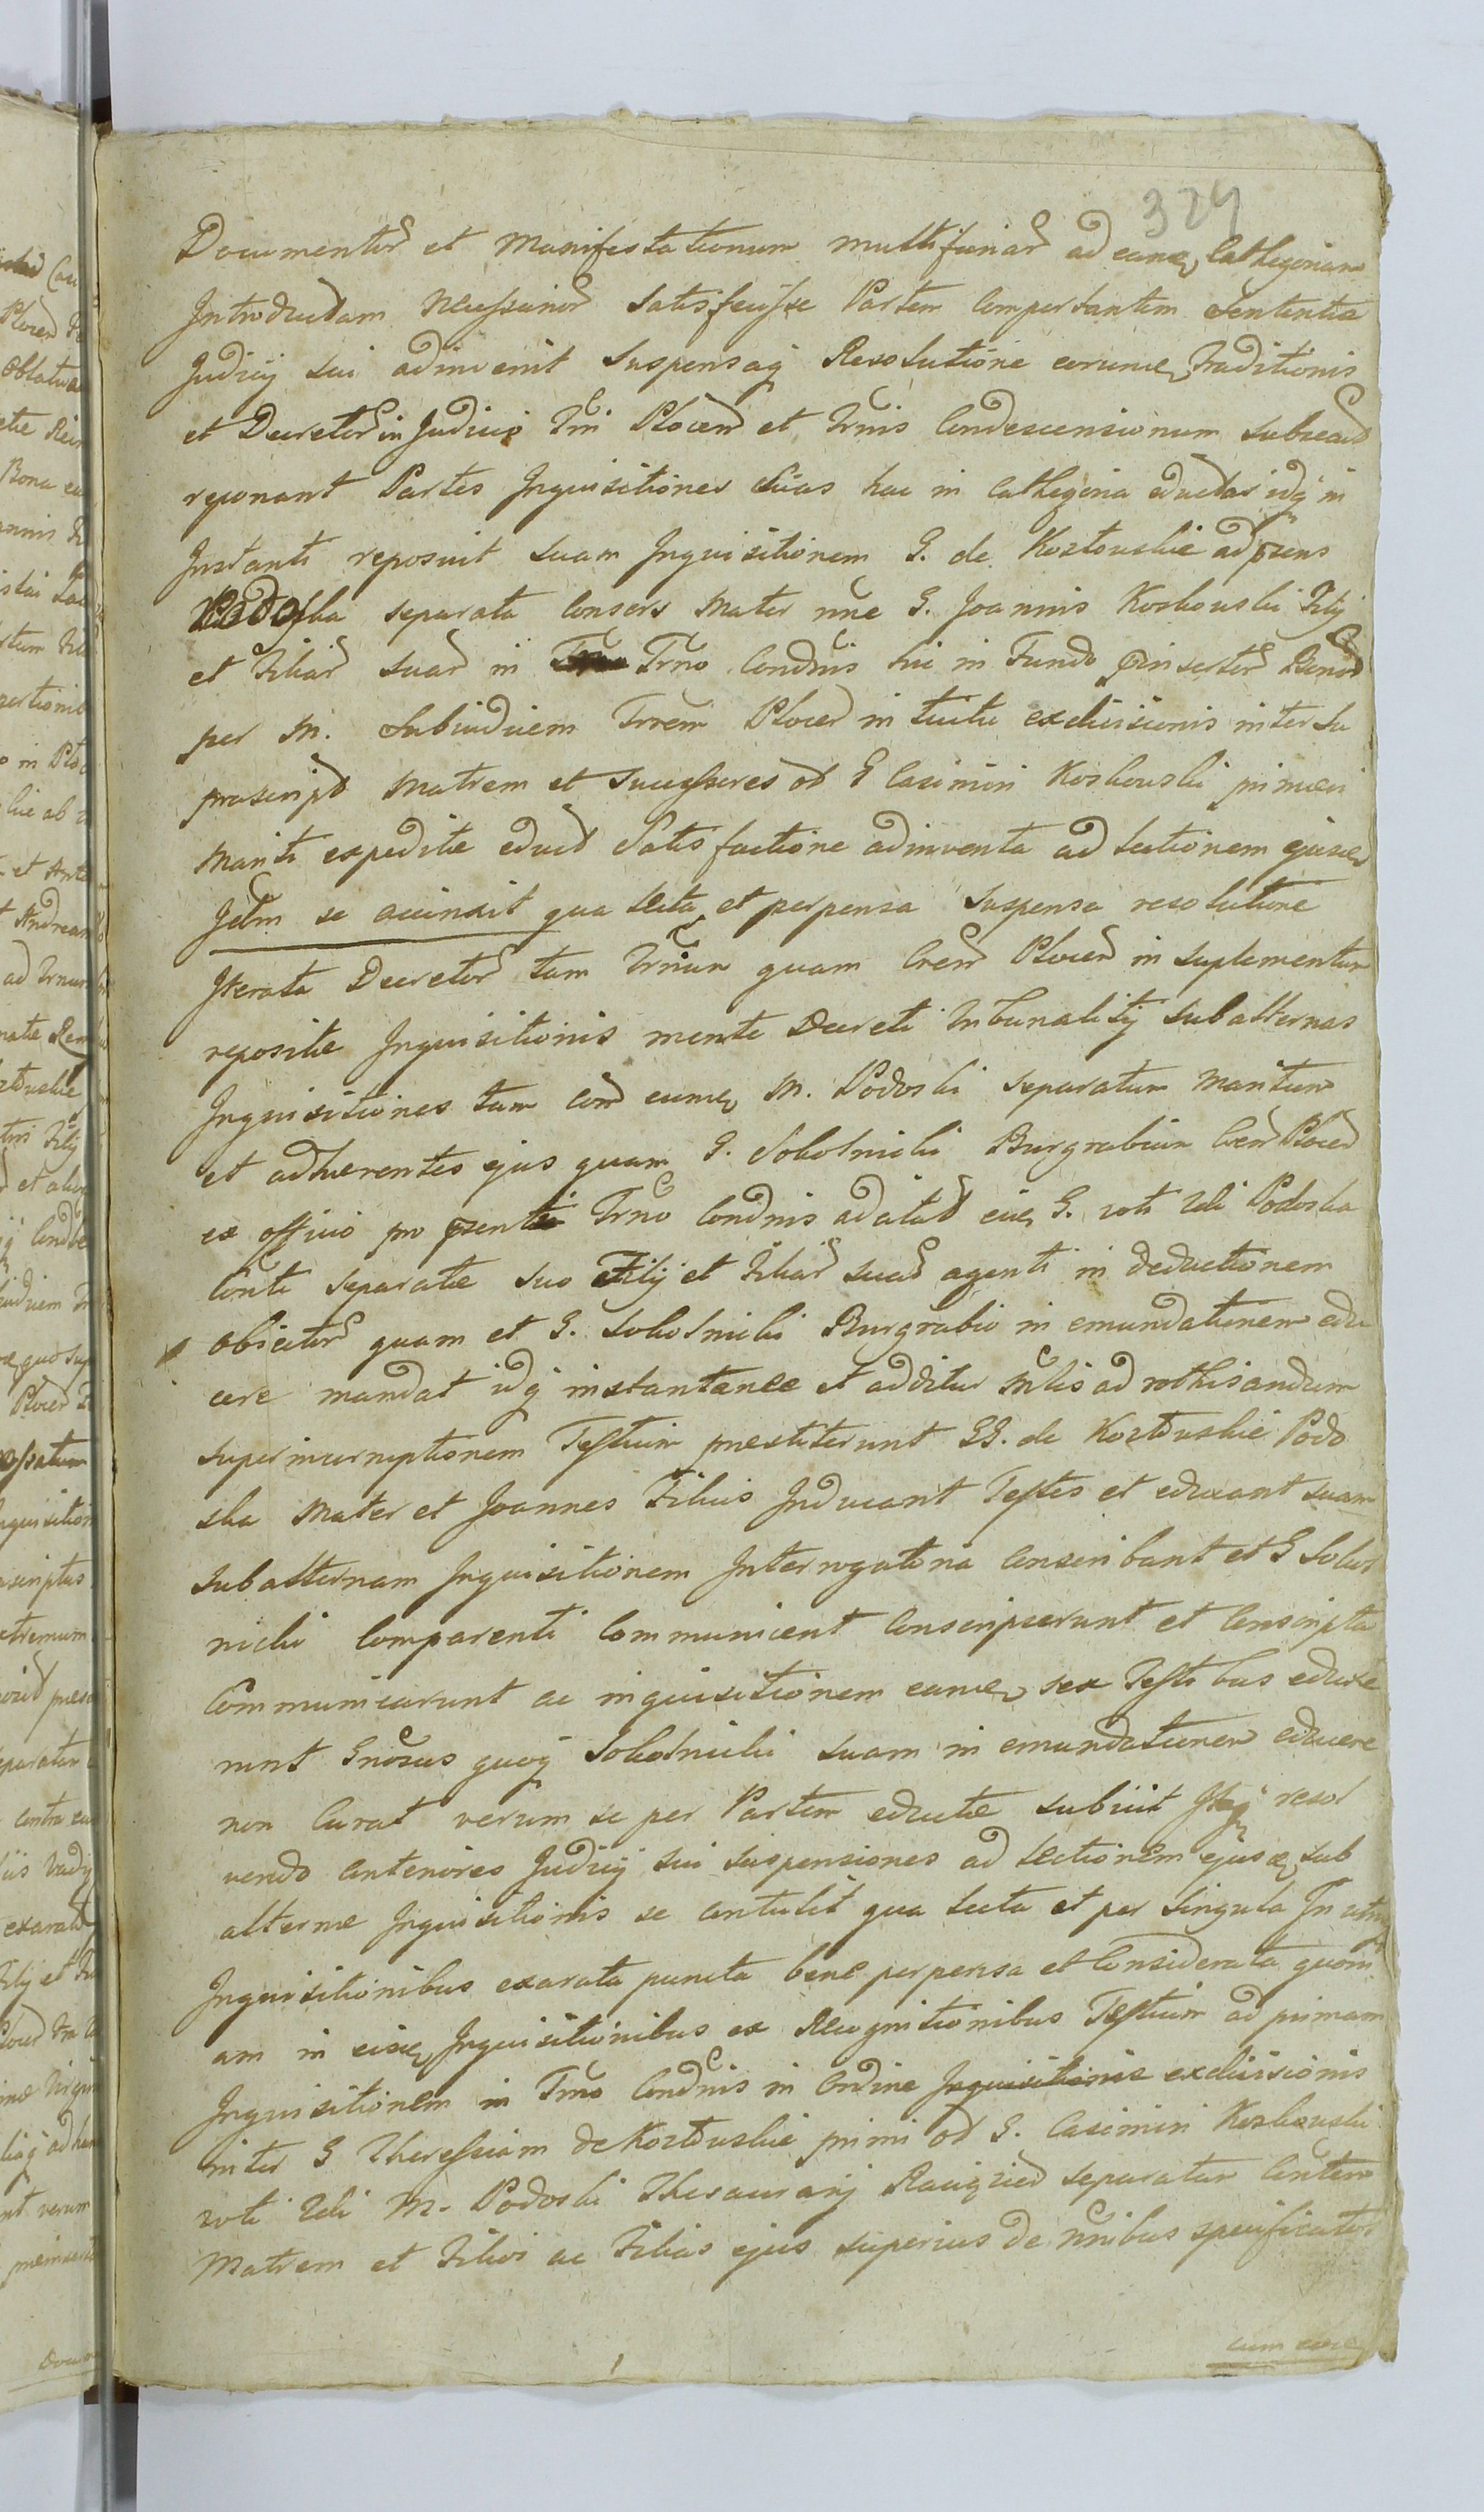 324
Documentor et Manifestationum multifariar ad eand Cathegoriam
Introducdam necessarior satisfecisse Partem Comportantem Sententia
Judicij sui adinvenit suspensaq Resolutione eorund Traditionis
et Decretor in Judicio Trri Plocen et Trnis Condescensionum subsecut
reponant Partes Inquisitiones suas hac in Cathegoria eductas idq in
Instanti reposuit suam Inquisitionem G. de Kozłowskie ad pzens
Podoska separata Consors Mater nne G. Joannis Kozłowski Filij
et Filiar suar in Trno Condnis hic in Fundo pinsertor Bonor
per M. Subiudicem Trrem Plocen in tuitu exdivisionis inter su
prascript Matrem et Successores od G Casimiri Koskouski primevi
Mariti expeditie educt Satisfactione adinventa ad lectionem ejusd
Jetm se accinxit qua lecta et perpensa suspensa resolutione
Iterata Decretor tam Trnium quam Cren Plocen in suplementum
repositie Inquisitionis mente Decreti Tribunalitij subalternas
Inquisitiones tam Con eumd M. Podoski separatum Maritum
et adhaerentes ejus quam G. Sokolnicki Burgrabium Cren Plocen
ex officio pro pzenti Trno Condnis adcitat eid G. voti 2di Podoska
Conti separatae suo Filij et Filiar suar agenti in deductionem
obiector quam et G. Sokolnicki Burgrabio in emundationem edu
cere mandat idq instantanee et additur Mlis ad rothisandum
super incorruptionem Testium praestiterunt GG. de Kozłowskie Podo
ska Mater et Joannes Filius Inducant Testes et educant suam
subalternam Inquisitionem Interrogatoria Conscribant et G Sokol
nicki Comparenti Communicent Conscripserunt et Conscripta
Communicarunt ac inquisitionem eand sex Testibus eduxe
runt Gnosus quoq Sokolnicki suam in emundationem educere
non Curat verum se per Partem eductae subiicit Itaq resol
vendo anteriores Judicij sui suspensiones ad lectionem ejusd sub
alternae Inquisitionis se contulit qua lecta et per singula In utriq
Inquisitionibus exarata puncta bene perpensa et Considerata quoni
am in eisd Inquisitionibus ex Recognitionibus Testium ad primam
Inquisitionem in Trno Condnis in Ordine Inquisitionis exdivisionis
inter G Theressiam de Kozłowskie primi od G. Casimiri Koskouski
voti 2di M. Podoski Thesaurarij Raciązen separatam Contem
Matrem et Filios ac Filias ejus superius de nnibus specificatos
cum eod